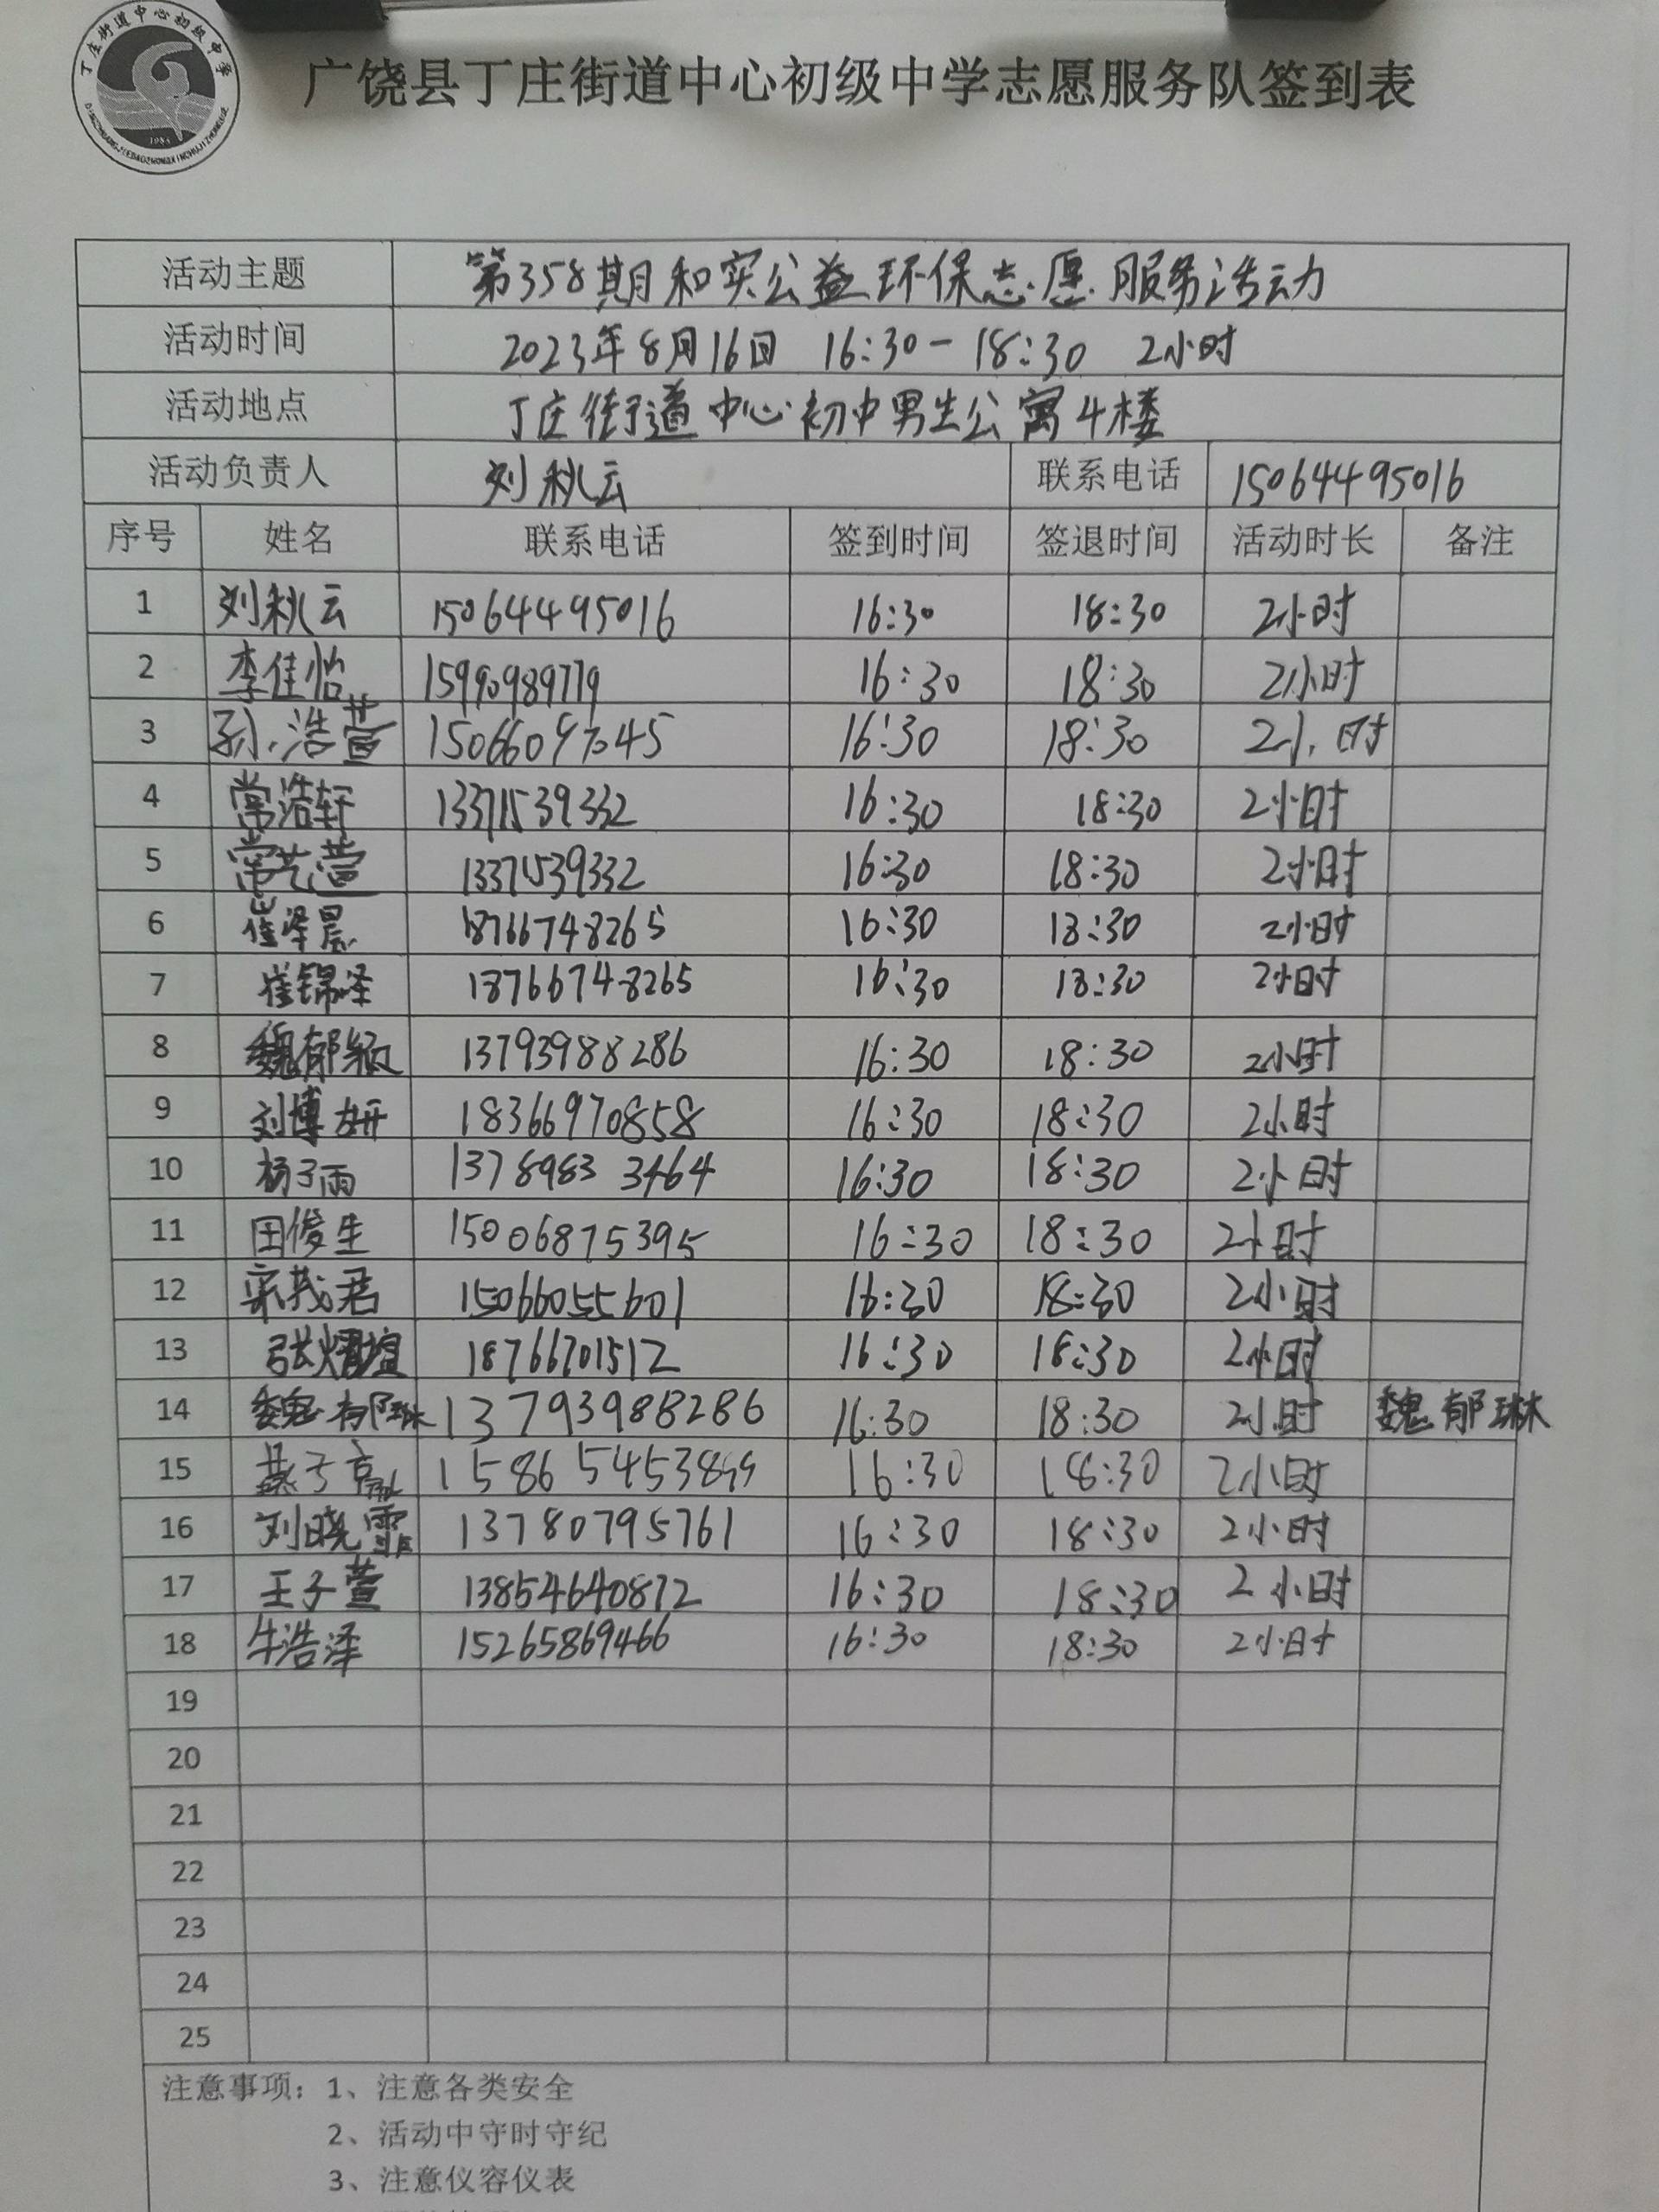 丁庄街道中心初级中学
1984
广饶县丁庄街道中心初级中学志愿服务队签到表
活动主题 第358期和实公益环保志愿服务活动
活动时间 2023年8月16日 16:30-18:30 2小时
活动地点 丁庄街道中心初中男生公寓4楼
活动负责人 刘秋云 联系电话 15064495016
序号 姓名 联系电话 签到时间 签退时间 活动时长 备注
1 刘秋云 15064495016 16:30 18:30 2小时
2 李佳怡 16:30 18:30 2小时
3 孙浩萱 15066097045 16:30 18:30 2小时
4 常浩轩 13371539332 16:30 18:30 2小时
5 常艺萱 13371539332 16:30 18:30 2小时
6 崔泽晨 18766748265 16:30 18:30 2小时
7 崔锦泽 18766748265 16:30 18:30 2小时
8 魏郁 13793988286 16:30 18:30 2小时
9 刘博妍 18366970858 16:30 18:30 2小时
10 杨子雨 13789833464 16:30 18:30 2小时
11 田俊生 15006875395 16:30 18:30 2小时
12 宋茂君 15066055601 16:30 18:30 2小时
13 张 18766701512 16:30 18:30 2小时
14 魏郁琳 13793988286 16:30 18:30 2小时 魏郁琳
15 燕子 16:30 18:30 2小时
16 刘晓霏 13780795761 16:30 18:30 2小时
17 王子萱 13854640872 16:30 18:30 2小时
18 牛浩泽 15265869466 16:30 18:30 2小时
19
20
21
22
23
24
25
注意事项：1、注意各类安全
2、活动中守时守纪
3、注意仪容仪表